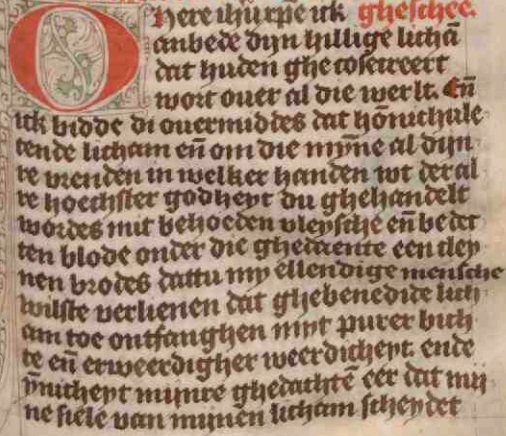 O here ihū xpē ick gheschee.
anbede dyn hillige lichā
dat huden ghe cosecreert
wort ouer al die werlt. Eñ
ick bidde di ouermiddes dat hōnichule
tende licham eñ om die mȳne al dijn
re vrenden in welker handen wt der al
re hoechster godheyt du ghehandelt
wordes mit behoeden vleyssche eñ bedec
ten blode onder die ghedaente een cley
nen brodes dattu my ellendige mensche
wilste verlienen dat ghebenedide lich
am toe ontfanghen myt purer bich
te eñ erweerdigher weerdicheyt. ende
ȳnicheyt mijnre ghedachtē eer dat mij
ne siele van mijnen licham scheydet